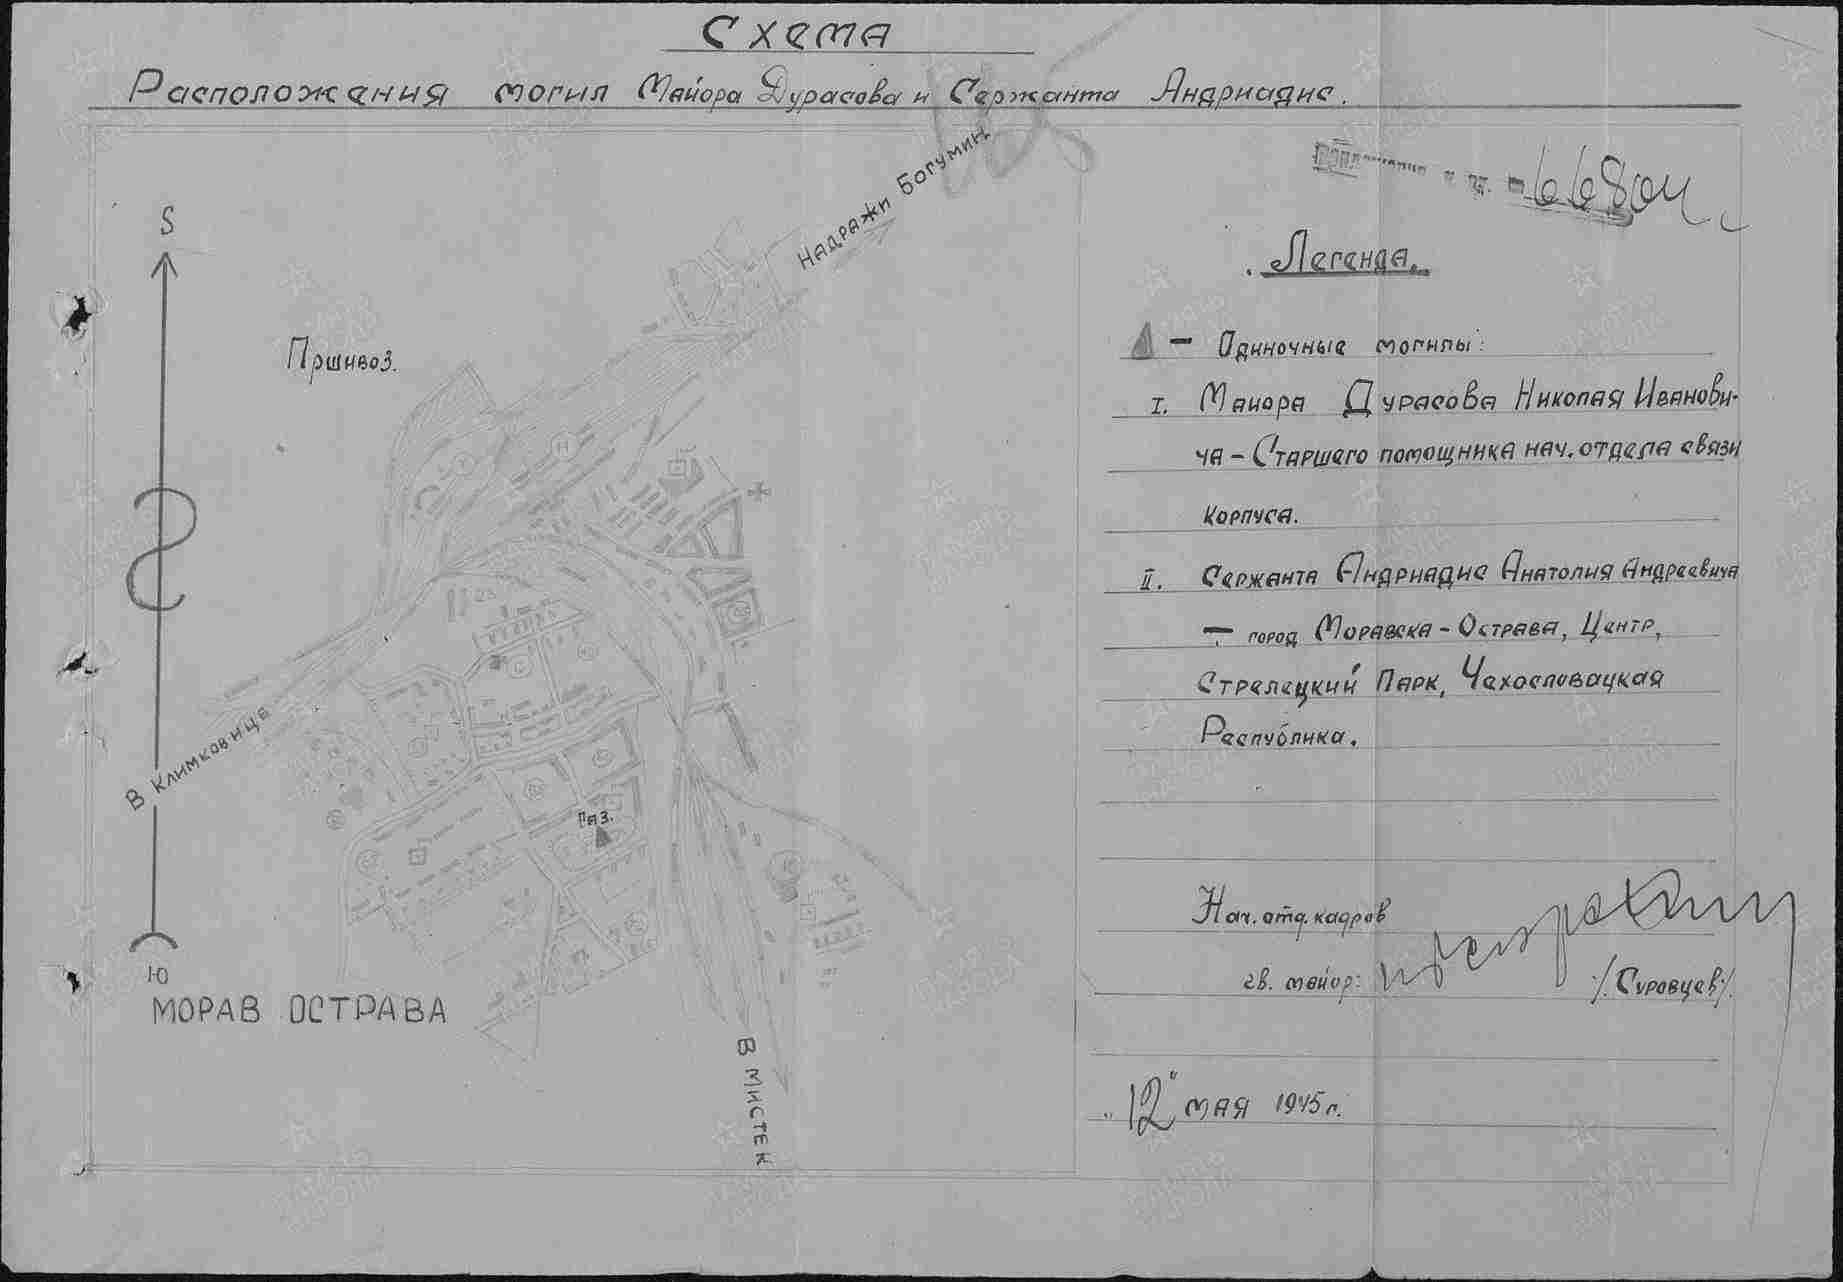 Схема
Расположения могил Майора Дурасова и Сержанта Андриадис.
Надражи Богумин
S
66804
Легенда.
Пршивоз.
– Одиночные могилы:
I. Майора Дурасова Николая Иванови-
ча – Старшего помощника нач. отдела связи
корпуса.
II. Сержанта Андриадис Анатолия Андреевича
– город Моравска-Острава, Центр,
Стрелецкий Парк, Чехословацкая
Республика.
В Климковице
Нач. отд. кадров
гв. майор: /Суровцев/.
Ю
МОРАВ ОСТРАВА
В МИСТЕК
"12" мая 1945 г.